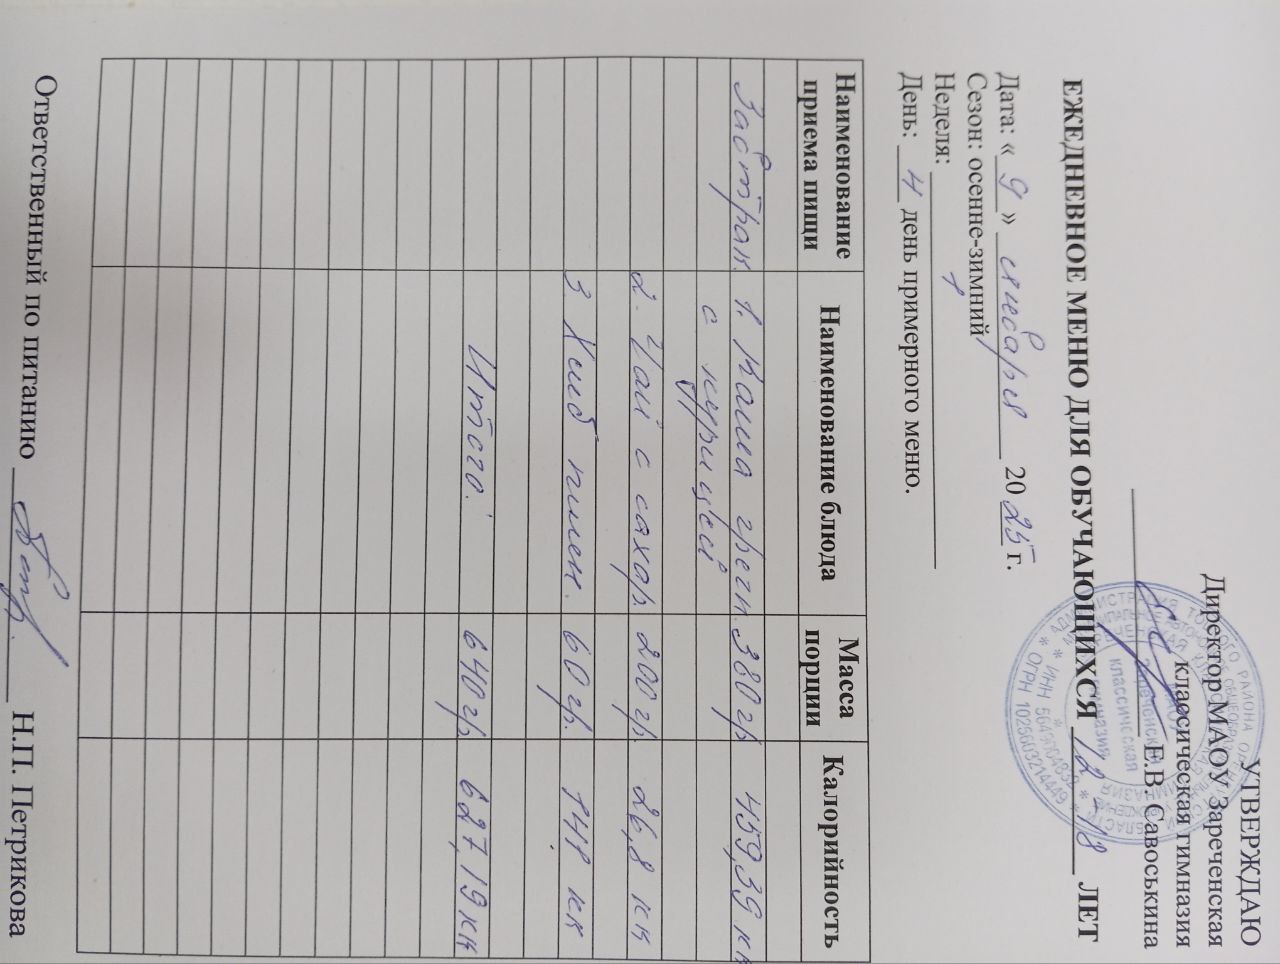 УТВЕРЖДАЮ
Директор МАОУ Зареченская
классическая гимназия
Е.В. Савоськина
ЕЖЕДНЕВНОЕ МЕНЮ ДЛЯ ОБУЧАЮЩИХСЯ 12-18 ЛЕТ
Дата: « 9 » января 2025 г.
Сезон: осенне-зимний
Неделя: 1
День: 4 день примерного меню.
Наименование приема пищи Наименование блюда Масса порции Калорийность
Завтрак. 1. Каша гречн. 380 гр 459,39 кк
с курицей
2. Чай с сахар 200 гр. 26,8 кк
3. Хлеб пшен. 60 гр. 141 кк
Итого: 640 гр. 627,19 кк
Ответственный по питанию Н.П. Петрикова